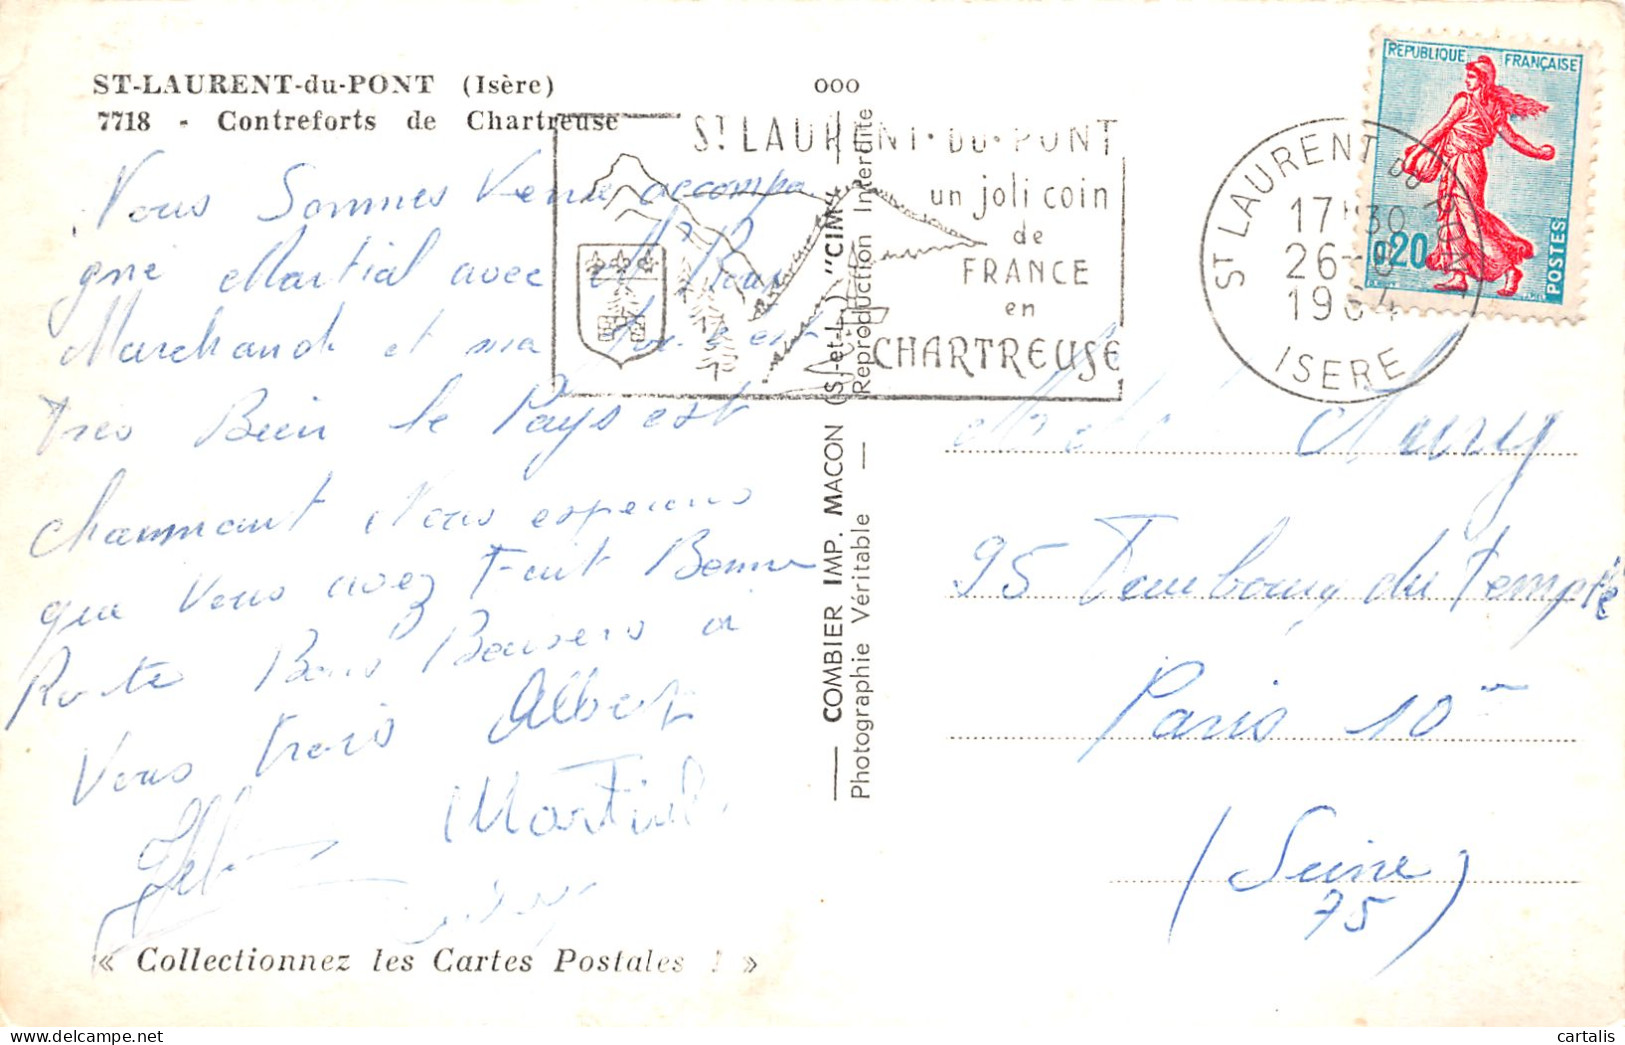 ST-LAURENT-du-PONT (Isère)
7718 - Contreforts de Chartreuse
Nous Sommes Venu accompa
gné Martial avec Mr
Marchand et ma
très Bien le Pays est
charmant Nous esperons
que Vous avez Fait Bonne
Route Bons Baisers à
Vous trois Albert
Martial
« Collectionnez les Cartes Postales ! »
ooo
COMBIER IMP. MACON (S.-et-L.) "CIM"
Photographie Véritable — Reproduction Interdite
ST LAURENT-DU-PONT
un joli coin
de
FRANCE
en
CHARTREUSE
ST LAURENT DU PONT
17H30
26-
1964
ISERE
REPUBLIQUE FRANÇAISE
0,20
POSTES
95 Faubourg du Temple
Paris 10
(Seine)
75
cartalis